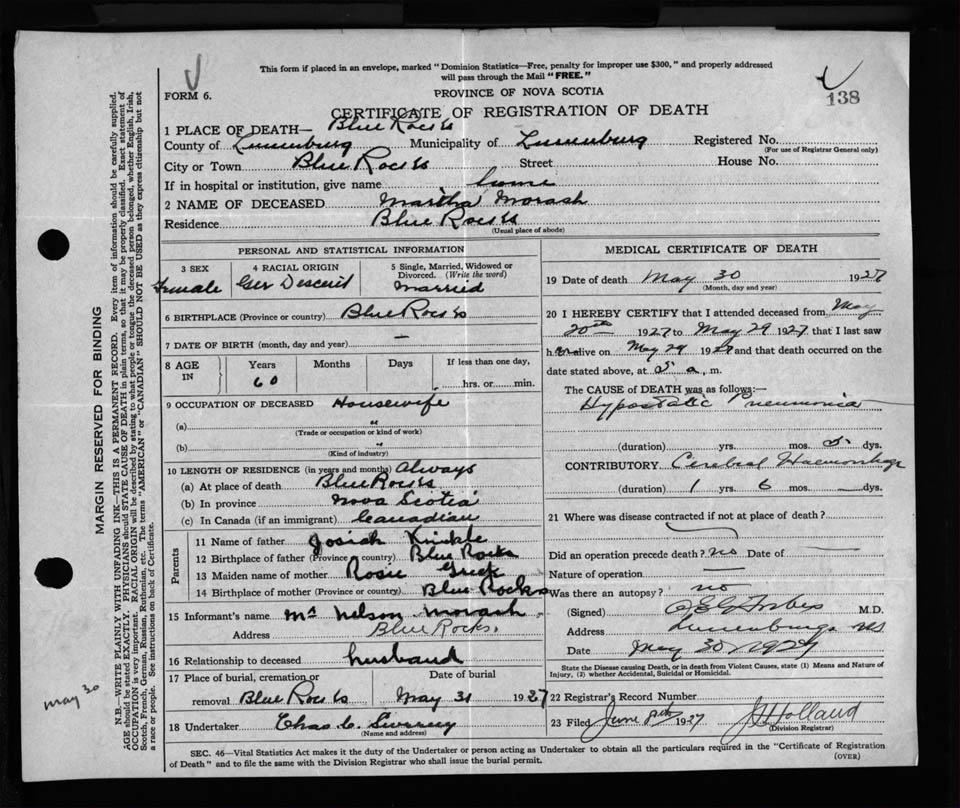 This form if placed in an envelope, marked "Dominion Statistics—Free, penalty for improper use $300," and properly addressed
will pass through the Mail "FREE."
FORM 6.
PROVINCE OF NOVA SCOTIA
138
CERTIFICATE OF REGISTRATION OF DEATH
1 PLACE OF DEATH— Blue Rocks
County of Lunenburg Municipality of Lunenburg Registered No.
(For use of Registrar General only)
City or Town Blue Rocks Street House No.
If in hospital or institution, give name home
2 NAME OF DECEASED Martha Morash
Residence Blue Rocks
(Usual place of abode)
PERSONAL AND STATISTICAL INFORMATION
3 SEX
Female
4 RACIAL ORIGIN
Ger Descent
5 Single, Married, Widowed or
Divorced. (Write the word)
Married
6 BIRTHPLACE (Province or country) Blue Rocks
7 DATE OF BIRTH (month, day and year) —
8 AGE
IN
Years
60
Months
Days
If less than one day,
hrs. or min.
9 OCCUPATION OF DECEASED Housewife
(a) "
(Trade or occupation or kind of work)
(b) "
(Kind of industry)
10 LENGTH OF RESIDENCE (in years and months) Always
(a) At place of death Blue Rocks
(b) In province Nova Scotia
(c) In Canada (if an immigrant) Canadian
Parents
11 Name of father Josiah Knickle
12 Birthplace of father (Province or country) Blue Rocks
13 Maiden name of mother Rosie Greek
14 Birthplace of mother (Province or country) Blue Rocks
15 Informant's name Mr Nelson Morash
Address Blue Rocks.
16 Relationship to deceased husband
17 Place of burial, cremation or Date of burial
removal Blue Rocks May 31 1927
18 Undertaker Chas C.
(Name and address)
MEDICAL CERTIFICATE OF DEATH
19 Date of death May 30 1927
(Month, day and year)
20 I HEREBY CERTIFY that I attended deceased from May
20th 1927 to May 29 1927 that I last saw
her alive on May 29 1927 and that death occurred on the
date stated above, at 5 a. m.
The CAUSE of DEATH was as follows:—
Hypostatic Pneumonia
(duration) yrs. mos. 5 dys.
CONTRIBUTORY Cerebral Haemorrhage
(duration) 1 yrs 6 mos. — dys.
21 Where was disease contracted if not at place of death?
Did an operation precede death? no Date of —
Nature of operation —
Was there an autopsy? no
(Signed) Forbes M.D.
Address Lunenburg NS
Date May 30/1927
State the Disease causing Death, or in death from Violent Causes, state (1) Means and Nature of
Injury, (2) whether Accidental, Suicidal or Homicidal.
22 Registrar's Record Number
23 Filed June 1927 Holland
(Division Registrar)
SEC. 46—Vital Statistics Act makes it the duty of the Undertaker or person acting as Undertaker to obtain all the particulars required in the "Certificate of Registration
of Death" and to file the same with the Division Registrar who shall issue the burial permit. (OVER)
MARGIN RESERVED FOR BINDING
N.B.—WRITE PLAINLY WITH UNFADING INK—THIS IS A PERMANENT RECORD. Every item of information should be carefully supplied.
AGE should be stated EXACTLY. PHYSICIANS should STATE CAUSE OF DEATH in plain terms, so that it may be properly classified. Exact statement of
OCCUPATION is very important. RACIAL ORIGIN will be described by stating to what people or tongue the deceased person belonged, whether English, Irish,
Scotch, French, German, Russian, Ruthenian, etc. The terms "AMERICAN" or "CANADIAN" SHOULD NOT BE USED as they express citizenship but not
a race or people. See instructions on back of Certificate.
may 30